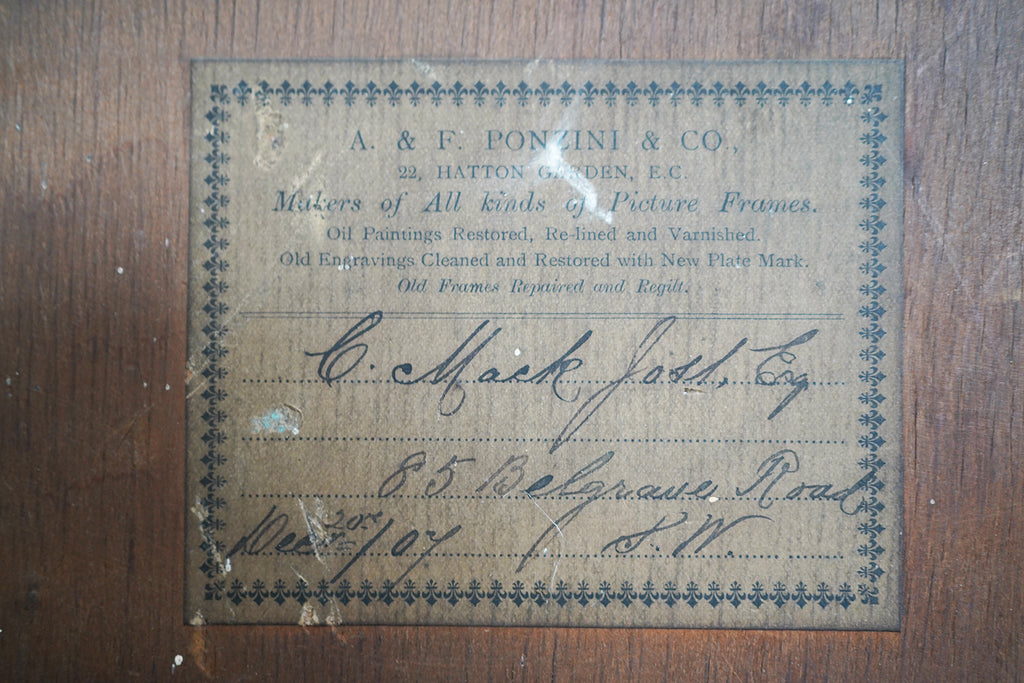 A. & F. PONZINI & CO.,
22, HATTON GARDEN, E.C.
Makers of All kinds of Picture Frames.
Oil Paintings Restored, Re-lined and Varnished.
Old Engravings Cleaned and Restored with New Plate Mark.
Old Frames Repaired and Regilt.
C. Mack Jost, Esq
85 Belgrave Road
Dec /07 S.W.